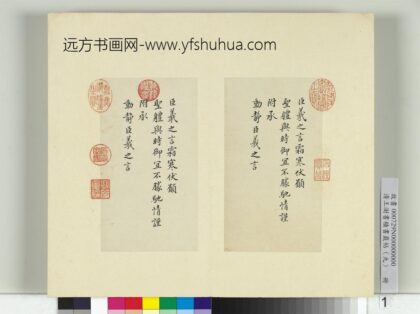 远方书画网-www.yfshuhua.com
臣羲之言霜寒伏願
聖體與時御宜不勝馳情謹
附承
動靜臣羲之言
臣羲之言霜寒伏願
聖體與時御宜不勝馳情謹
附承
動靜臣羲之言
故書 000729N00000000
清王澍書積書巖帖(九) 冊
1